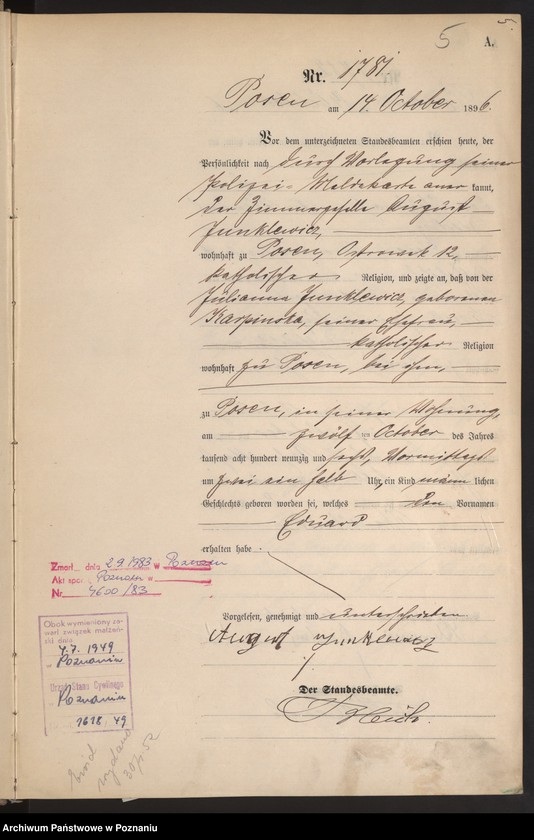 5
5.
A.
Nr. 1781
Posen am 14. October 1896.
Vor dem unterzeichneten Standesbeamten erschien heute, der
Persönlichkeit nach durch Vorlegung seiner
Polizei-Meldekarte aner kannt,
der Zimmergeselle August
Junklewicz,
wohnhaft zu Posen, Ostrowek 12,
katholischer Religion, und zeigte an, daß von der
Julianna Junklewicz, geborenen
Karpinska, seiner Ehefrau,
katholischer Religion
wohnhaft zu Posen, bei ihm,
zu Posen, in seiner Wohnung,
am zwölf ten October des Jahres
tausend acht hundert neunzig und sechs, Vormittags
um zwei ein halb Uhr, ein Kind männ lichen
Geschlechts geboren worden sei, welches den Vornamen
Eduard
erhalten habe
Vorgelesen, genehmigt und unterschrieben
August Junklewicz
Der Standesbeamte.
Zmarł dnia 2 9 1983 w Poznaniu
Akt spo Poznań w
Nr 4600/83
Obok wymieniony za-
warł związek małżeń-
ski dnia
4.7. 1949
w Poznaniu
Urząd Stanu Cywilnego
w Poznaniu
1618 49
wydano
Archiwum Państwowe w Poznaniu